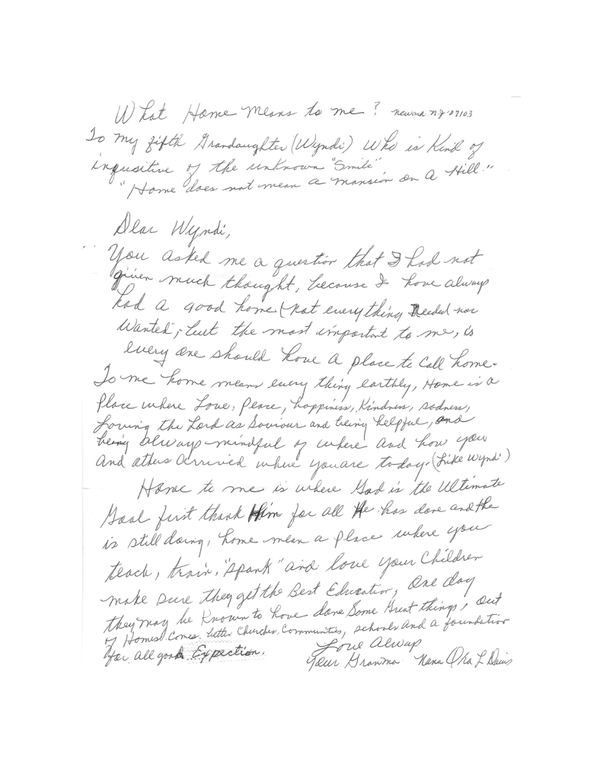 What Home Means to me? Newark NJ 07103
To my fifth Grandaughter (Wyndi) Who is Kind of
inqusitive of the unknown "Smile"
"Home does not mean a mansion on a Hill."
Dear Wyndi,
You asked me a question that I had not
given much thought, because I have always
had a good home (not everything Needed nor
Wanted, but the most important to me, is
every one should have a place to call home.
To me home means every thing earthly, Home is a
Place where Love, Peace, happiness, Kindness, sadness,
Loving the Lord as Saviour and being helpful, and
being always mindful of where and how you
and others arrived where you are today. (Like Wyndi)
Home to me is where God is the Ultimate
Goal first thank Him for all He has done and the
is still doing, home mean a place where you
teach, train, "spank" and love your Children
make sure they get the Best Education, One day
they may be Known to have done Some Great things, Out
of Homes Comes better Churches, Communities, schools and a foundation
for all good Expection.
Love Always
Your Grandma Nana L Davis